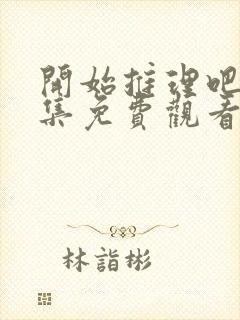 開始推理吧
集免費觀看
林詣彬